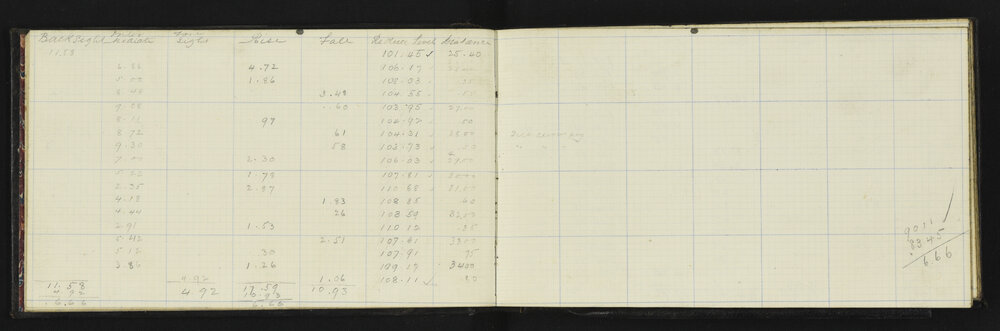 Back Sight Inter mediate Fore Sight Rise Fall Reduce Level Distance
11.58 101.45 ✓ 25.40
6.86 4.72 106.17
5.00 1.86 108.03
8.48 3.48 104.55 50
9.08 .60 103.95 2700
8.11 97 104.92 50
8.72 61 104.31 2800
9.30 58 103.73 50
7.00 2.30 106.03 2900
5.22 1.78 107.81
2.35 2.87 110.68 3100
4.18 1.83 108.85 60
4.44 26 108.59 3200
2.91 1.53 110.12
5.42 2.51 107.61 3300
5.12 30 107.91 75
3.86 1.26 109.17 3400
4.92 1.06 108.11
11.58 4.92 17.59 10.93
4.92 10.93
6.66 6.66
9011
8345
6.66